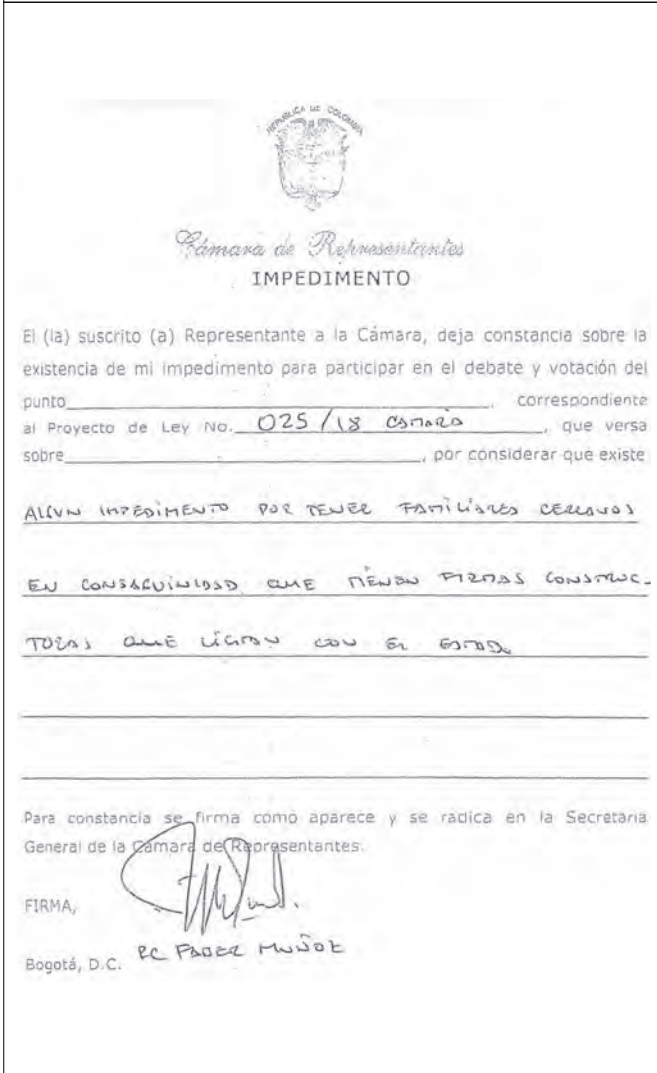 REPUBLICA DE COLOMBIA
Cámara de Representantes
IMPEDIMENTO
El (la) suscrito (a) Representante a la Cámara, deja constancia sobre la
existencia de mi impedimento para participar en el debate y votación del
punto____________, correspondiente
al Proyecto de Ley No. 025/18 CAMARA, que versa
sobre____________, por considerar que existe
ALGUN IMPEDIMENTO POR TENER FAMILIARES CERCANOS
EN CONSAGUINIDAD QUE TIENEN FIRMAS CONSTRUC-
TORAS QUE LICITAN CON EL ESTADO
Para constancia se firma como aparece y se radica en la Secretaria
General de la Cámara de Representantes.
FIRMA,
Bogotá, D.C. RC FABER MUÑOZ